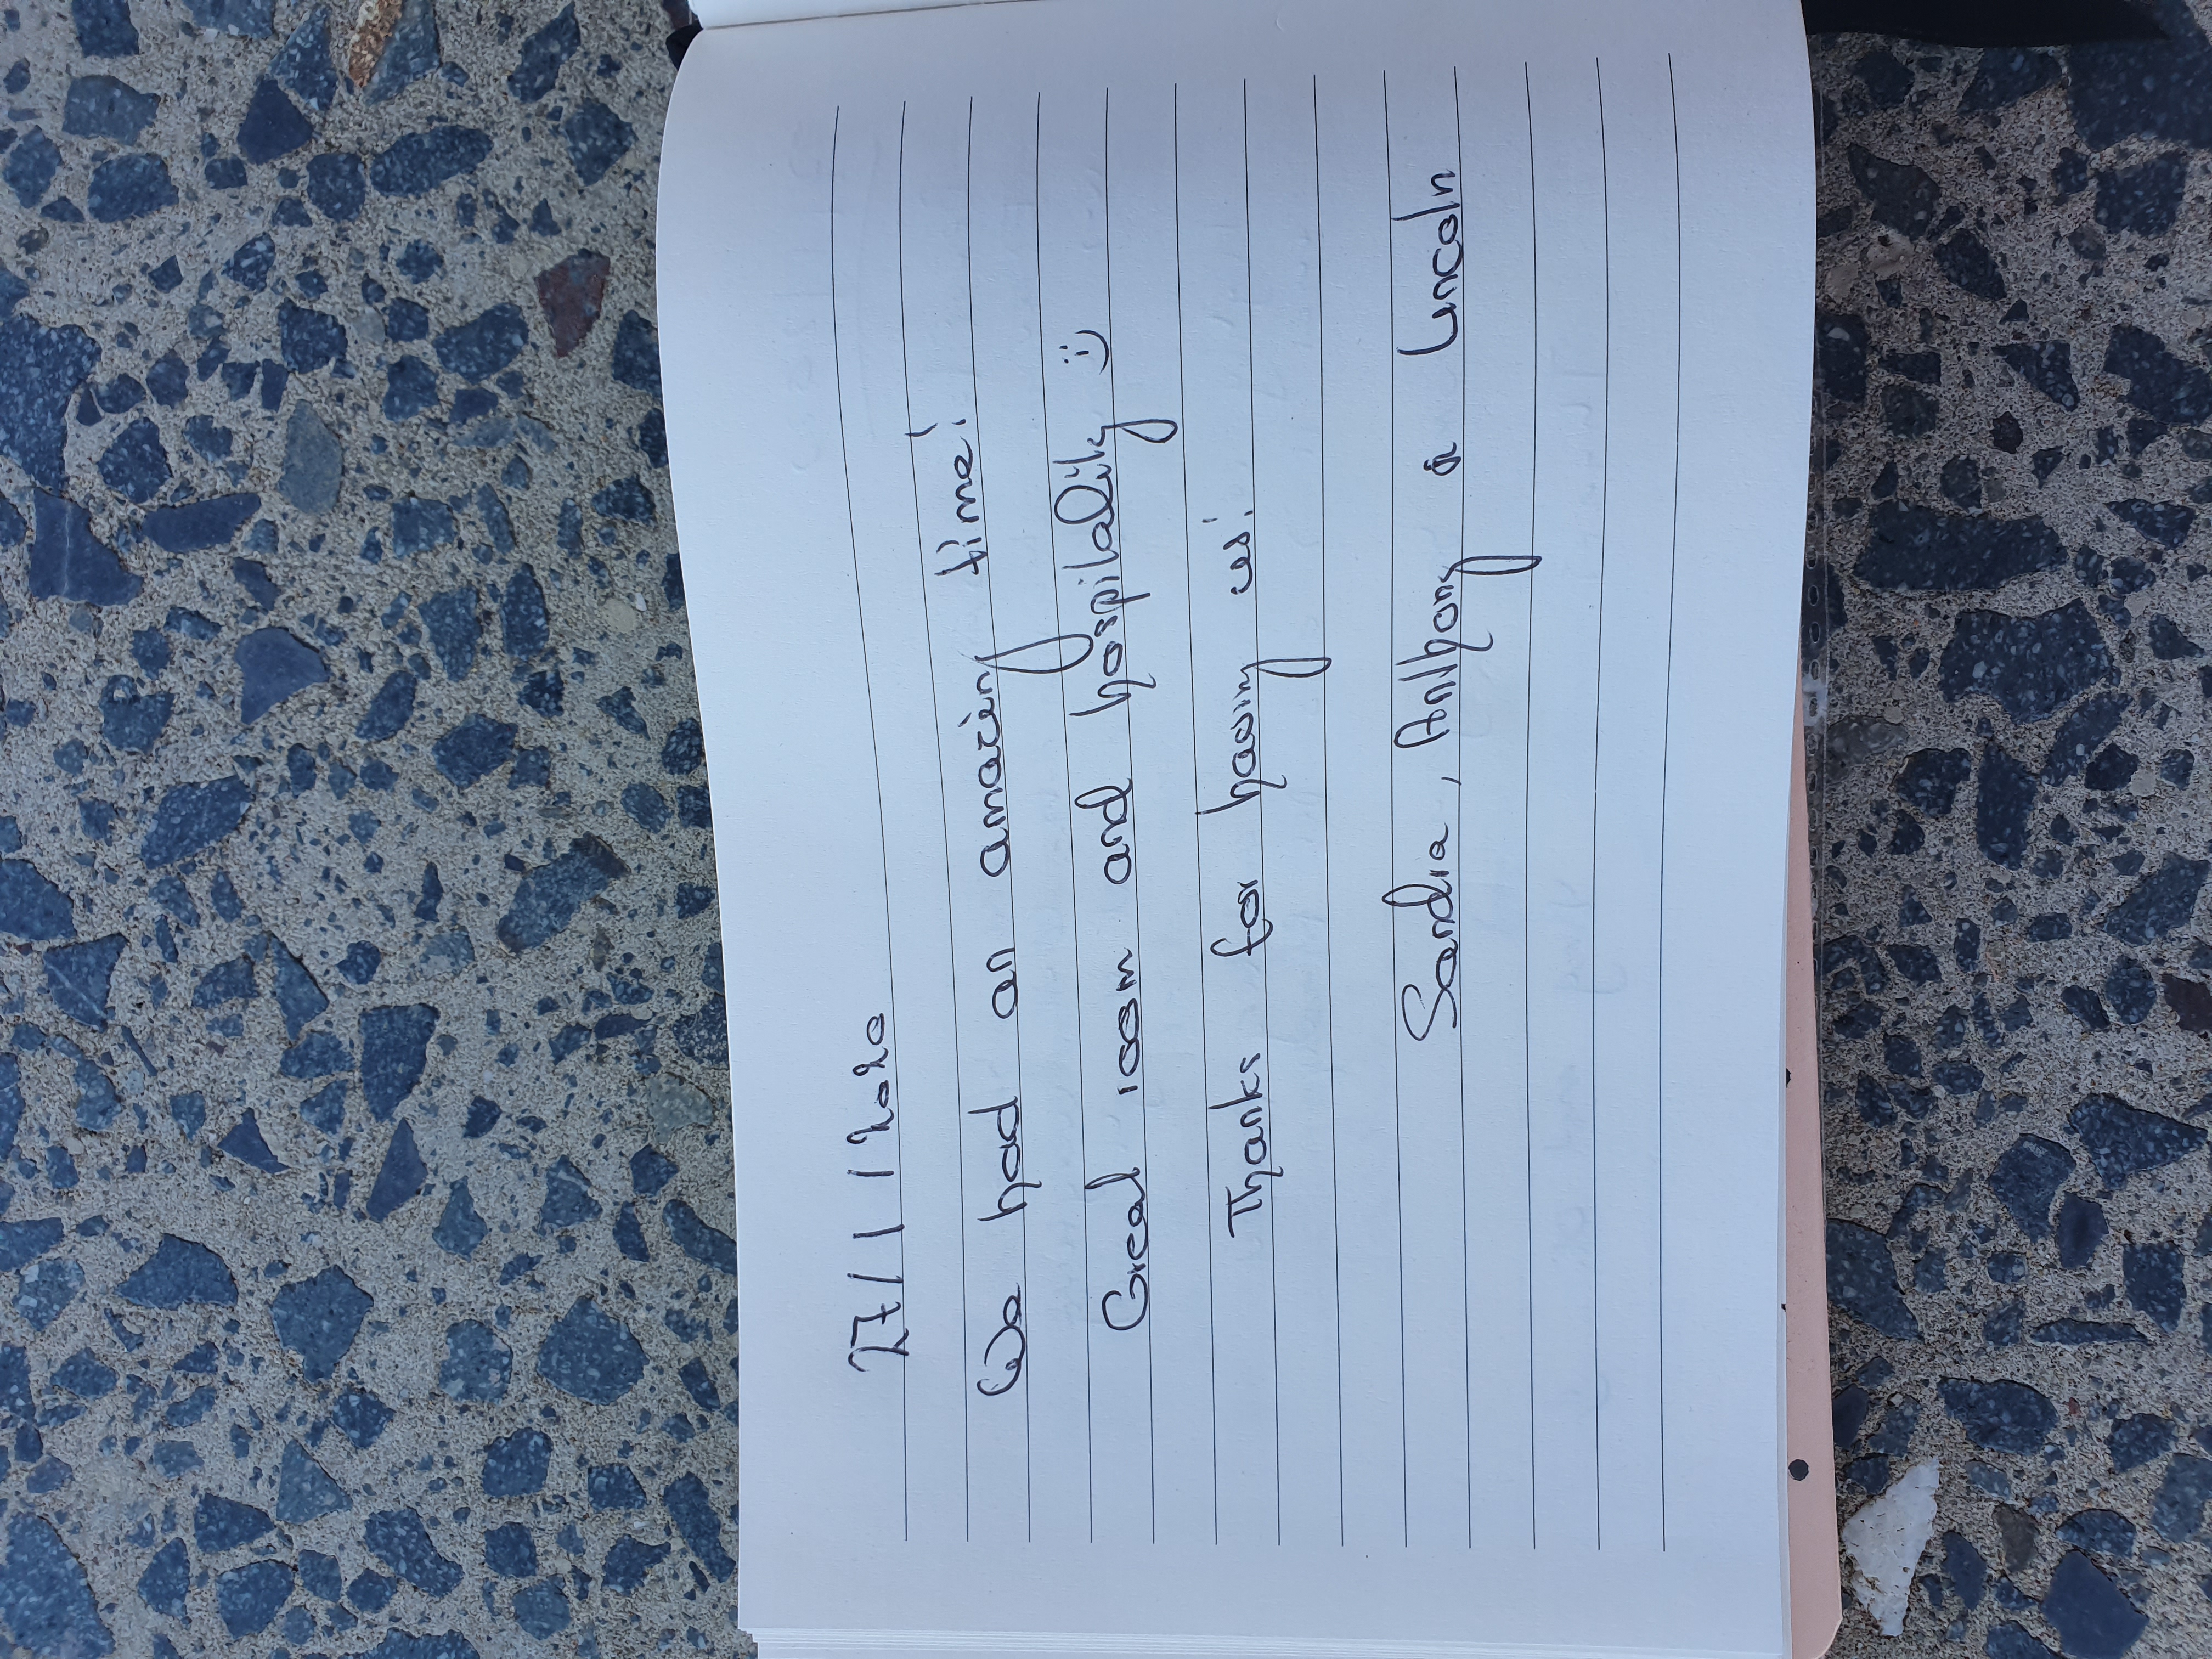 27/1/2020
We had an amazing time!
Great room and hospitality :)
Thanks for having us!
Sandra, Anthony & Lincoln